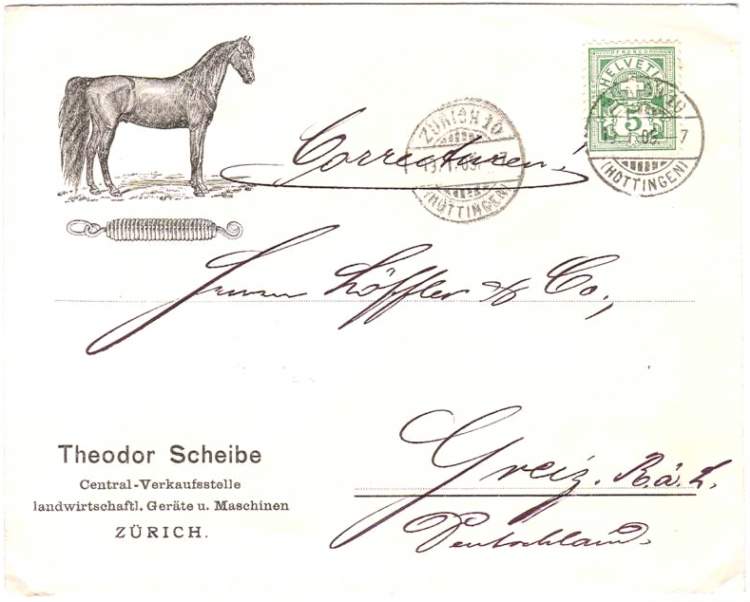 HELVETIA
5
ZÜRICH 10
(HOTTINGEN)
(HOTTINGEN)
Correcturen!
Herren Löffler & Co.,
Greiz. R.ä.L.
Deutschland
Theodor Scheibe
Central-Verkaufsstelle
landwirtschaftl. Geräte u. Maschinen
ZÜRICH.